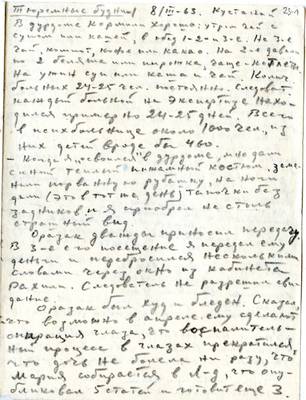 Тюремные будни 8/III-63. Кустанай 25-1
В дурдоме кормили хорошо: утром чай с
сушкой или кашей, в обед 1-2 и 3-е. На 3-е
чай, компот, кофе или какао. На 2-е дава-
ли 2 беляша или пирожка, чаще котлеты
На ужин суп или каша и чай. Колич.
больных 24-25 чел. постоянно. Следоват.
каждый больной на экспертизе нахо-
дился примерно 24-25 дней. Всего
в психбольнице около 1000 чел., из
них детей вроде бы 400.
- Когда я освоился в дурдоме, мне дали
синий теплый пижамный костюм, заме-
нили порванную рубашку на
дали (это в тот же день) тапочки без
задников и я приобрел не столь
страшный вид.
Оразак дважды приносил передачу
В 3-е его посещение я передал ему
деньги и перебросился несколькими
словами через окно из кабинета
Рахили. Следователь не разрешил сви-
дание.
Оразак был худ и бледен. Сказал,
что возможно в апреле ему сделают
операцию глаза, что воспалитель-
ный процесс в глазах прекратился
что дочь не болела ни разу, что
Мария собирается в Л-д, что опу-
бликовал 5 статей и готовит еще 3.